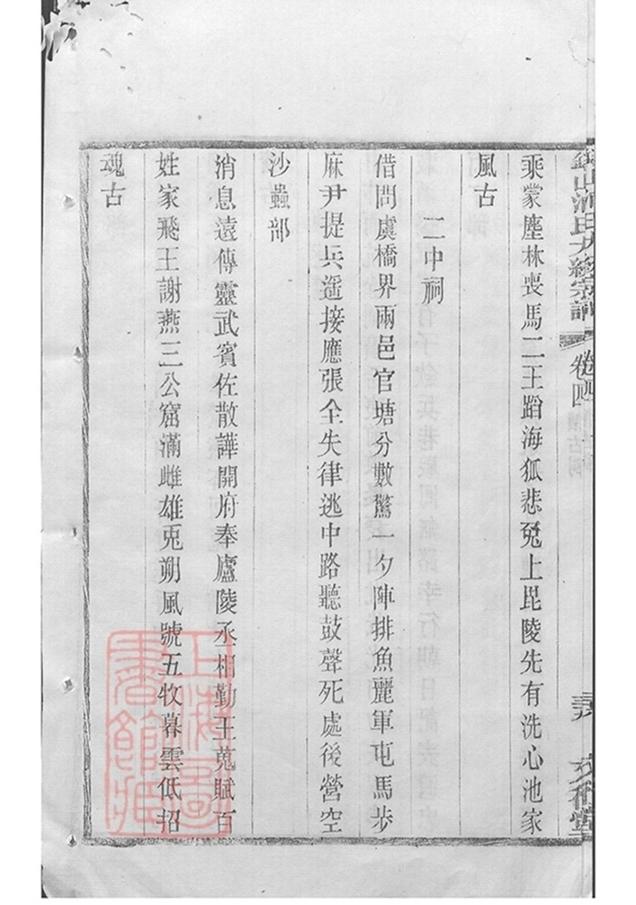 乘蒙塵林喪馬二王蹈海狐悲兔上毘陵先有洗心池家
風古
二中祠
借問虞橋界兩邑官塘分數驚一夕陣排魚麗軍屯馬步
麻尹提兵遥接應張全失律逃中路聽鼓聲死處後營空
沙蟲部
消息遠傳靈武賓佐散譁開府奉廬陵丞相勤王蒐賦百
姓家飛王謝燕三公窟滿雌雄兎朔風號五牧暮雲低招
魂古
氏大統宗譜
卷四
上海圖書館藏